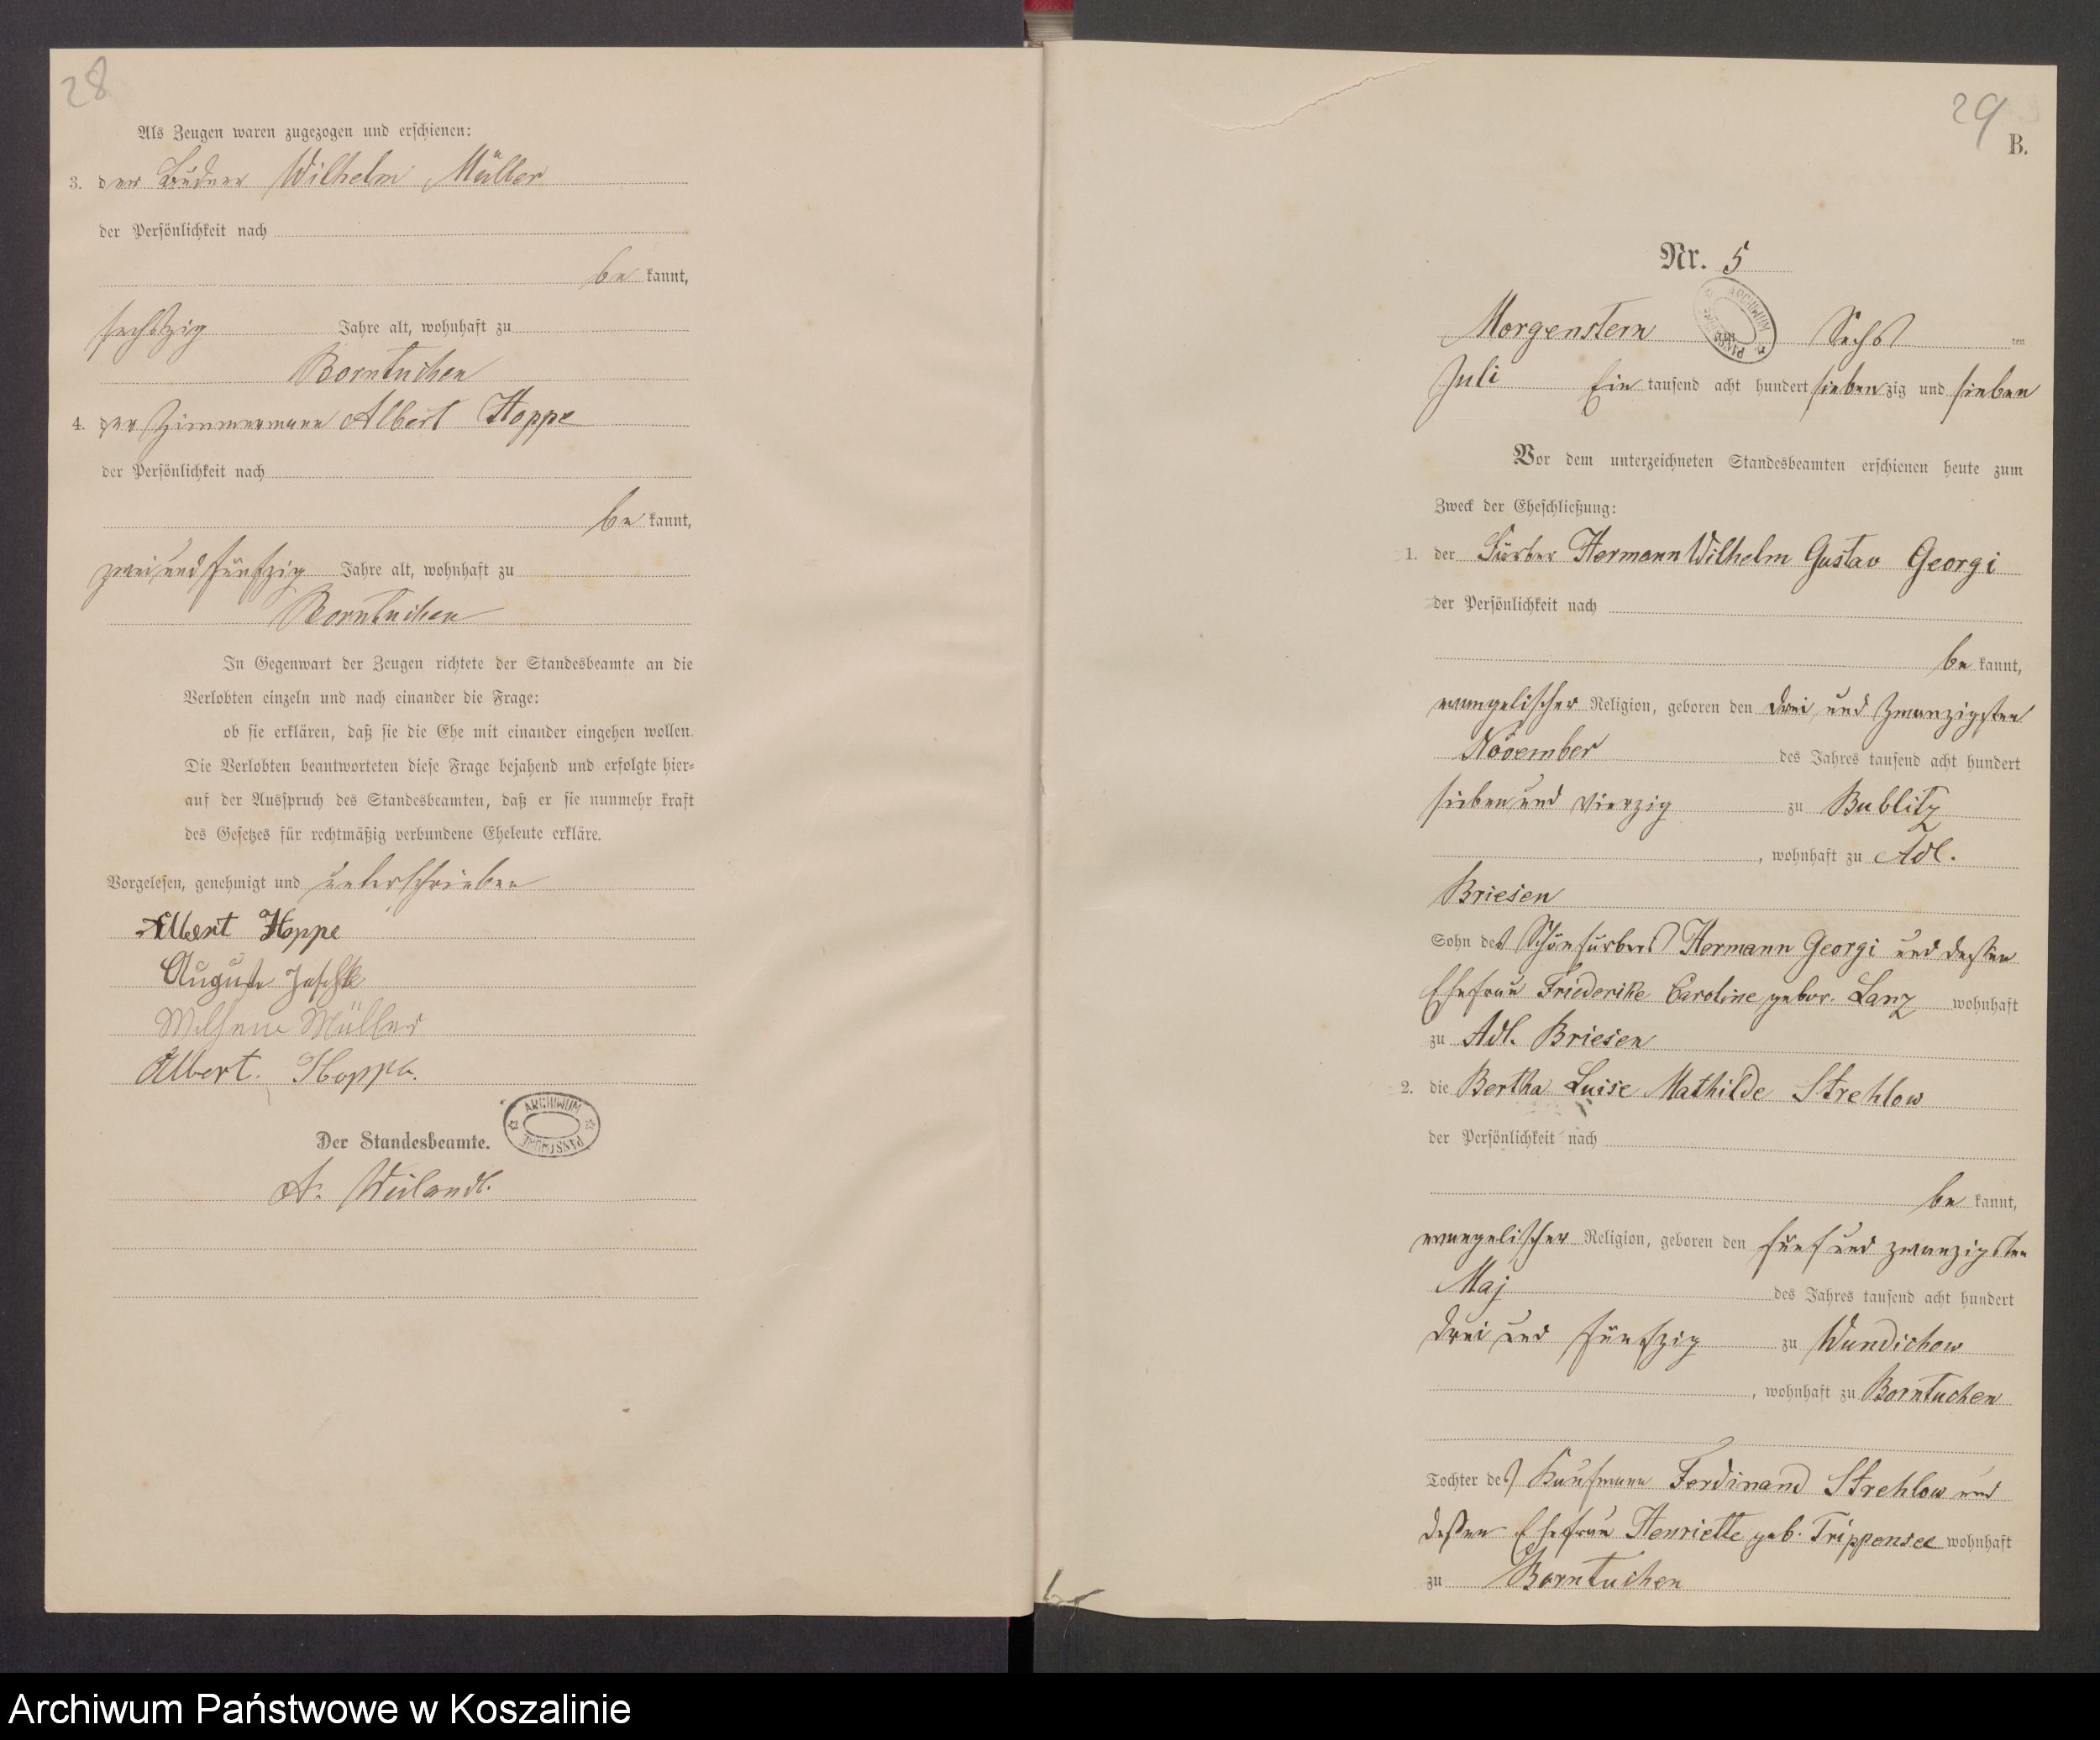 28
Als Zeugen waren zugezogen und erschienen:
3. der Büdner Wilhelm Müller
der Persönlichkeit nach
be kannt,
sechszig Jahre alt, wohnhaft zu
Borntuchen
4. der Zimmermann Albert Hoppe
der Persönlichkeit nach
be kannt,
zwei und fünfzig Jahre alt, wohnhaft zu
Borntuchen
In Gegenwart der Zeugen richtete der Standesbeamte an die
Verlobten einzeln und nach einander die Frage:
ob sie erklären, daß sie die Ehe mit einander eingehen wollen.
Die Verlobten beantworteten diese Frage bejahend und erfolgte hier-
auf der Ausspruch des Standesbeamten, daß er sie nunmehr kraft
des Gesetzes für rechtmäßig verbundene Eheleute erkläre.
Vorgelesen, genehmigt und unterschrieben
Albert Hoppe
Auguste Jaschke
Wilhelm Müller
Albert Hoppe.
ARCHIWUM PAŃSTWOWE
Der Standesbeamte.
A. Weilandt.
29
B.
Nr. 5
ARCHIWUM PAŃSTWOWE
Morgenstern am Sechs ten
Juli Ein tausend acht hundert sieben zig und sieben
Vor dem unterzeichneten Standesbeamten erschienen heute zum
Zweck der Eheschließung:
1. der Färber Hermann Wilhelm Gustav Georgi
der Persönlichkeit nach
be kannt,
evangelischer Religion, geboren den drei und zwanzigsten
November des Jahres tausend acht hundert
sieben und vierzig zu Bublitz
, wohnhaft zu Adl.
Briesen
Sohn des Schönfärbers Hermann Georgi und dessen
Ehefrau Friederike Caroline gebor. Lanz wohnhaft
zu Adl. Briesen
2. die Bertha Luise Mathilde Strehlow
der Persönlichkeit nach
be kannt,
evangelischer Religion, geboren den fünf und zwanzigsten
Maj des Jahres tausend acht hundert
drei und fünfzig zu Wundichow
, wohnhaft zu Borntuchen
Tochter des Kaufmann Ferdinand Strehlow und
dessen Ehefrau Henriette geb. Trippensee wohnhaft
zu Borntuchen
Archiwum Państwowe w Koszalinie